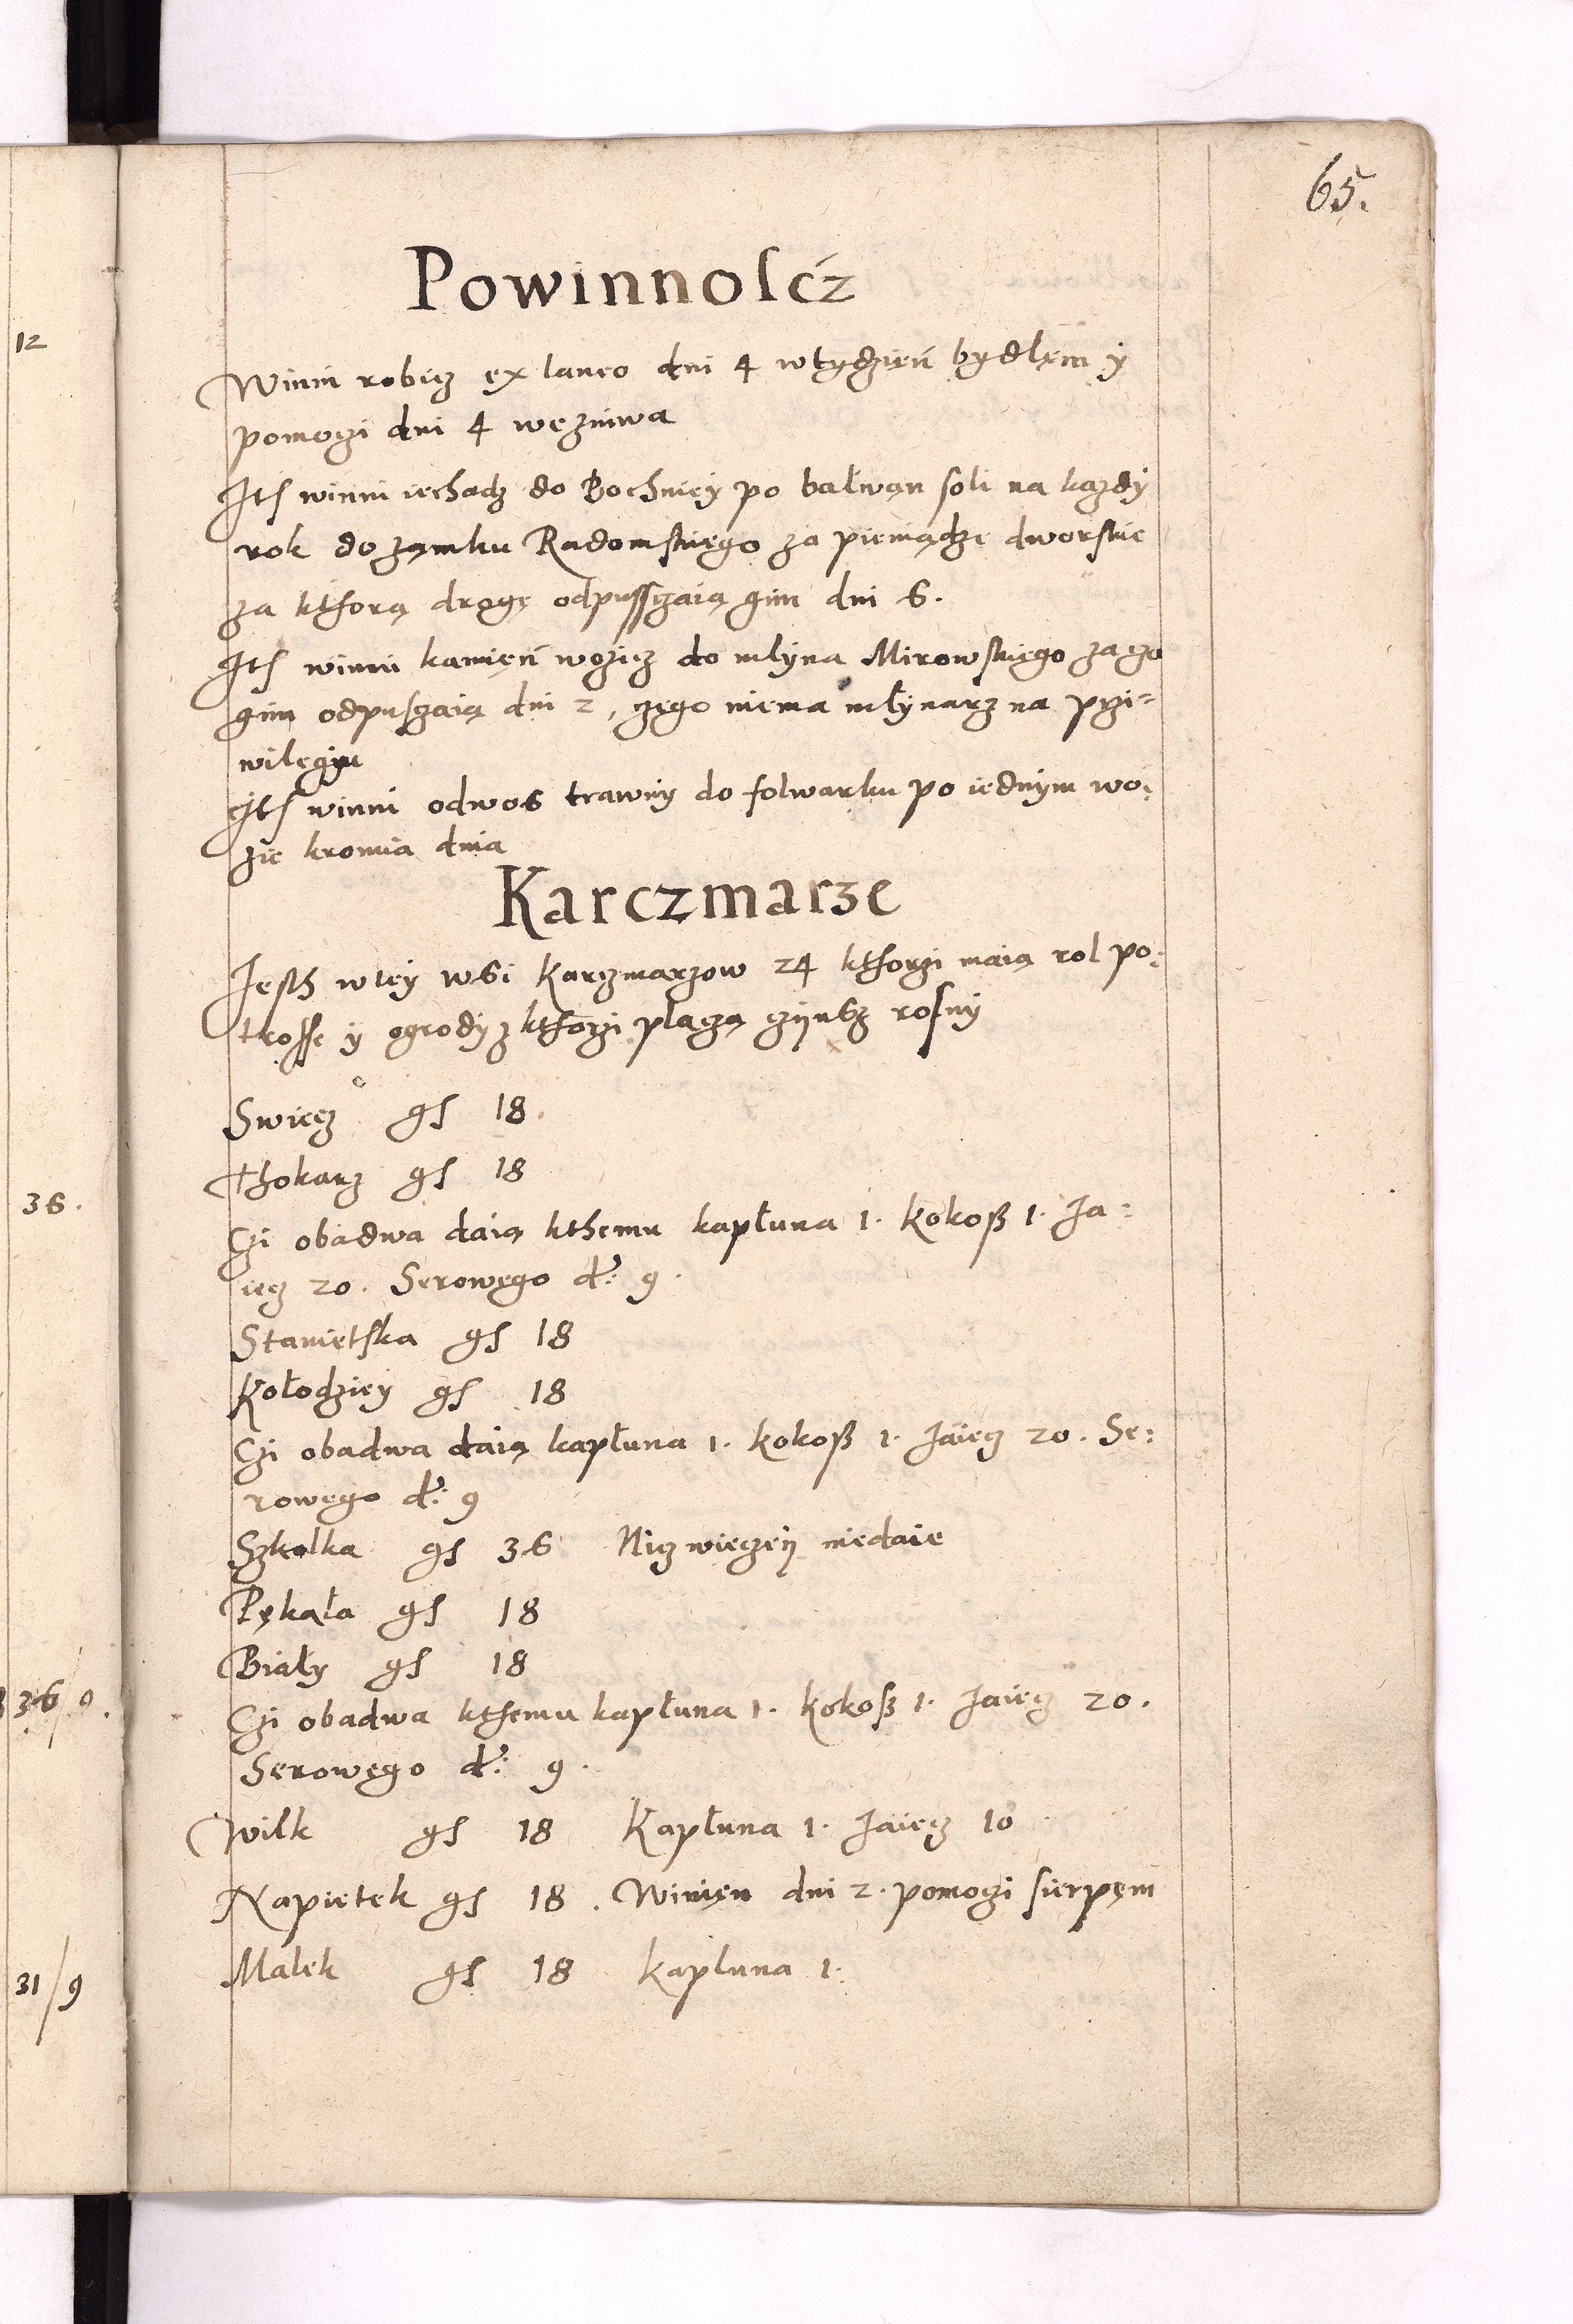 65.
Powinnoscź
Winni robicz ex laneo dni 4 wtydzień bydłęm y
pomoczi dni 4 wezniwa
Its winni iechadz do Bochniey po bałwan soli na kazdy
rok do zamku Radomskiego za pieniądze dworskie
za kthorą drogę odpussczaią gim dni 6.
Its winni kamięń wozicz do młyna Mirowskięgo zaczo
gim odpusczaią dni 2, czego niema młynarz na przi=
wilegiu
Its winni odwos trawny do folwarku po iednym wo:
zie kromia dnia
Karczmarze
Iesth wtey wsi Karczmarzow 24 kthorzi maią rol po:
trosse y ogrody z kthorzi płaczą czynsz rosny
Swiecz gs 18.
Thokarz gs 18
Czi obadwa daią kthemu kapłuna 1. Kokoß 1. Ja:
iecz 20. Serowego d: 9.
Stanietska gs 18
Kołodziey gs 18
Czi obadwa daią kapłuna 1. kokoß 1. Jaiecz 20. Se:
rowego d: 9
Szkolka gs 36 Nicz wieczey niedaie
Pękała gs 18
Biały gs 18
Czi obadwa kthemu kapłuna 1. kokoß 1. Jaiecz 20.
Serowego d: 9.
Wilk gs 18 Kapłuna 1. Jaiecz 10
Napietek gs 18. Winięn dni 2. pomoczi sierpęm
Malek gs 18 kapluna 1.
12
36.
36/9.
31/9